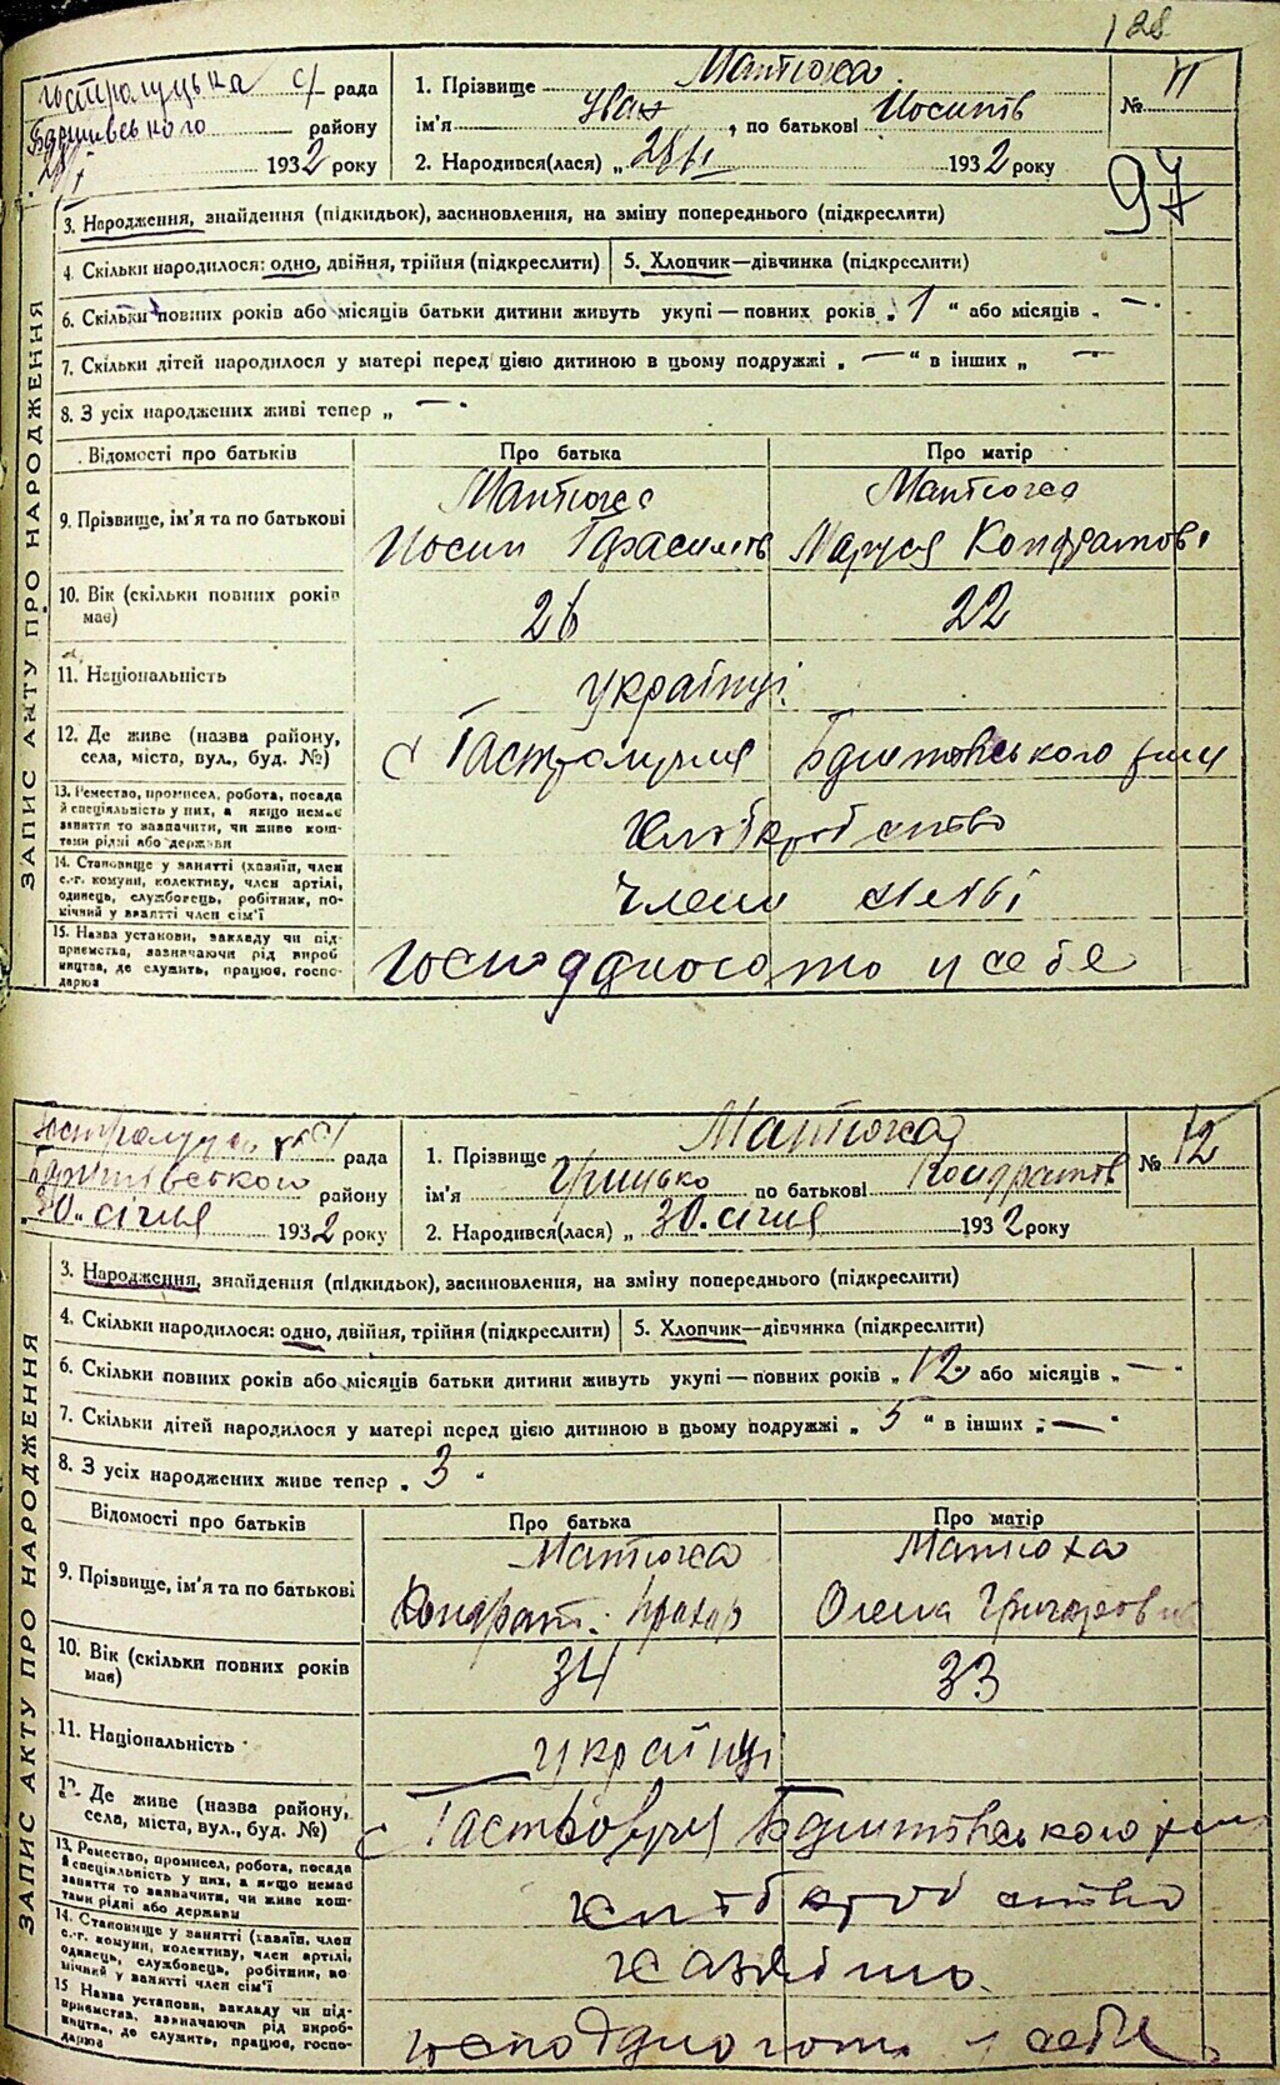 128
с/ рада
районy
1932 року
1. Прізвище Матюха
ім'я Іван, по батькові Йосипів
2. Народився(лася) „ 28/I 1932 року
№ 11
97
ЗАПИС АКТУ ПРО НАРОДЖЕННЯ
3. Народження, знайдення (підкидьок), засиновлення, на зміну попереднього (підкреслити)
4. Скільки народилося: одно, двійня, трійня (підкреслити)
5. Хлопчик—дівчинка (підкреслити)
6. Скільки повних років або місяців батьки дитини живуть укупі — повних років „ 1 “ або місяців „ —
7. Скільки дітей народилося у матері перед цією дитиною в цьому подружжі „ — “ в інших „ —
8. З усіх народжених живі тепер „ —
Відомості про батьків
Про батька
Про матір
9. Прізвище, ім'я та по батькові
Матюха
Йосип
Матюха
Маруся Кондратові
10. Вік (скільки повних років має)
26
22
11. Національність
українці
12. Де живе (назва району,
села, міста, вул., буд. №)
с
13. Ремество, промисел, робота, посада
й спеціяльність у них, а якщо немає
заняття то зазначити, чи живе кош-
тами рідні або держави
хліборобство
14. Становище у занятті (хазяїн, член
с.-г. комуни, колективу, член артілі,
одинець, службовець, робітник, по-
мічний у занятті член сім'ї
члени
15. Назва установи, закладу чи під-
приємства, зазначаючи рід вироб
ництва, де служить, працює, госпо-
дарює
у себе
рада
району
30. січня 1932 року
1. Прізвище Матюха
ім'я Грицько по батькові Кондратов
2. Народився(лася) „ 30. січня 1932 року
№ 12
ЗАПИС АКТУ ПРО НАРОДЖЕННЯ
3. Народження, знайдення (підкидьок), засиновлення, на зміну попереднього (підкреслити)
4. Скільки народилося: одно, двійня, трійня (підкреслити)
5. Хлопчик—дівчинка (підкреслити)
6. Скільки повних років або місяців батьки дитини живуть укупі — повних років „ 12 або місяців „ —
7. Скільки дітей народилося у матері перед цією дитиною в цьому подружжі „ 5 “ в інших „ —
8. З усіх народжених живе тепер „ 3 “
Відомості про батьків
Про батька
Про матір
9. Прізвище, ім'я та по батькові
Матюха
Кондрат. Прохор
Матюха
Олена
10. Вік (скільки повних років має)
34
33
11. Національність
українці
12. Де живе (назва району,
села, міста, вул., буд. №)
с
13. Ремество, промисел, робота, посада
й спеціяльність у них, а якщо немає
заняття то зазначити, чи живе кош-
тами рідні або держави
хліборобство
14. Становище у занятті (хазяїн, член
с.-г. комуни, колективу, член артілі,
одинець, службовець, робітник, по
мічний у занятті член сім'ї
15 Назва установи, закладу чи під-
приємства, зазначаючи рід вироб-
ництва, де служить, працює, госпо-
дарює
себе